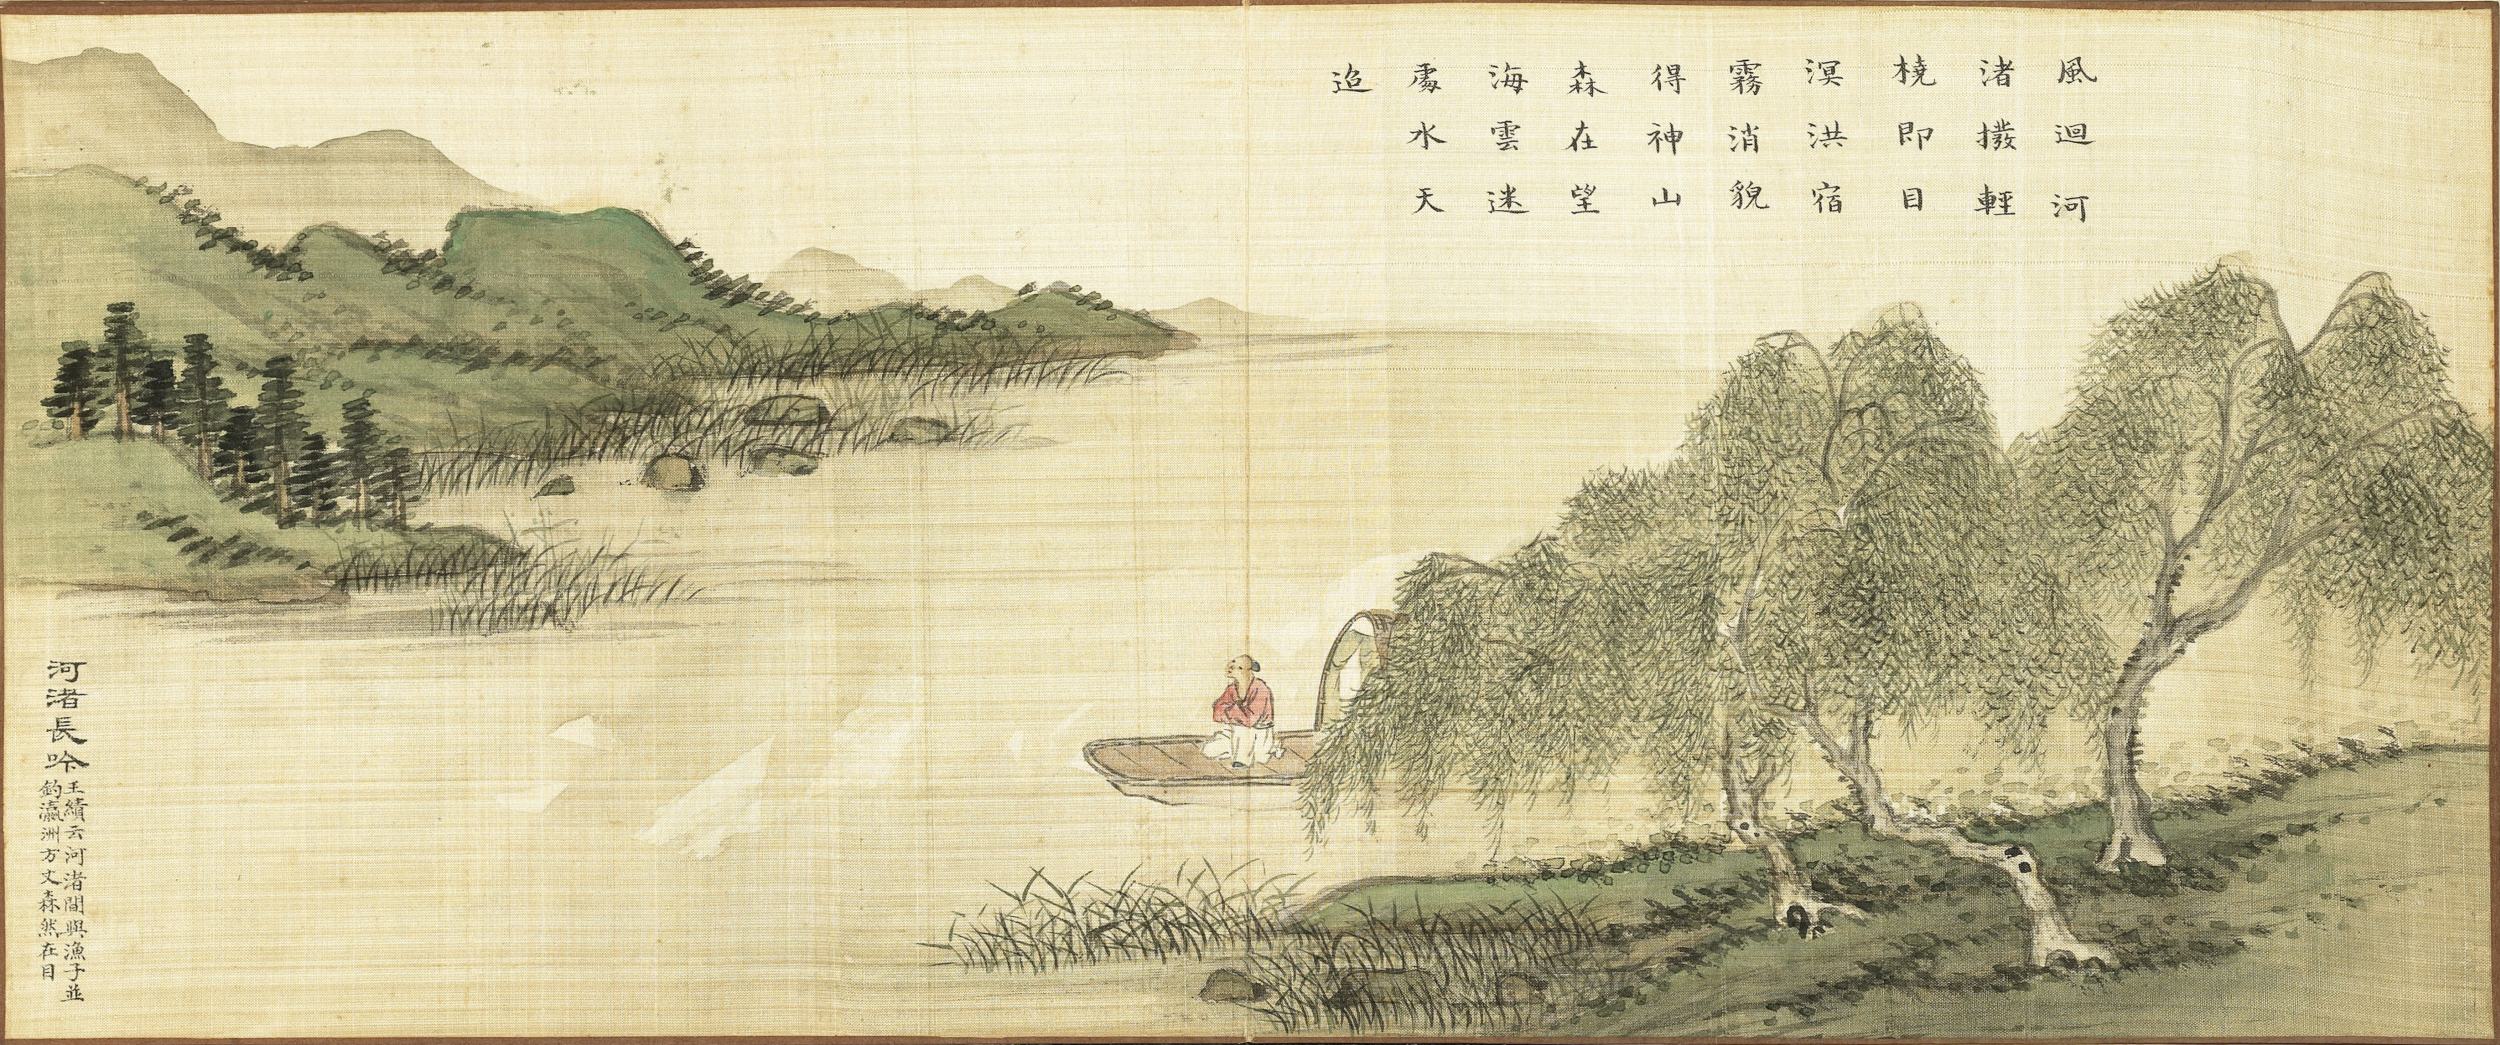 風迴河
渚撥輕
橈即目
溟洪宿
霧消貌
得神山
森在望
海雲迷
處水天
迨
河渚長吟
王績云河渚間與漁子並
釣瀛洲方丈森然在目